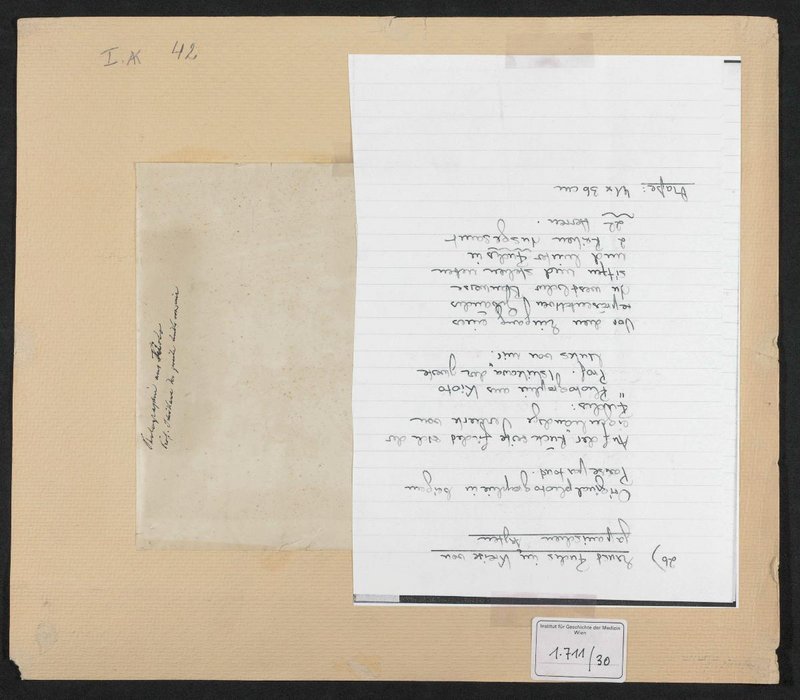 I. AK 42
Photographie aus Kioto
Prof. Ishikawa der zweite links von mir
26) Ernst Fuchs im Kreise von
japanischen Ärzten
Originalphotographie in beigem
Passepartout.
Auf der Rückseite findet sich der
eigenhändige Vermerk von
Fuchs:
"Photographie aus Kioto
Prof. Ishikawa, der zweite
links von mir."
Vor dem Eingang eines
repräsentativen Gebäudes
in westlicher Bauweise
sitzen und stehen neben
und hinter Fuchs in
2 Reihen insgesamt
22 Herren.
Maße: 41 x 36 cm
Institut für Geschichte der Medizin
Wien
1.711/30